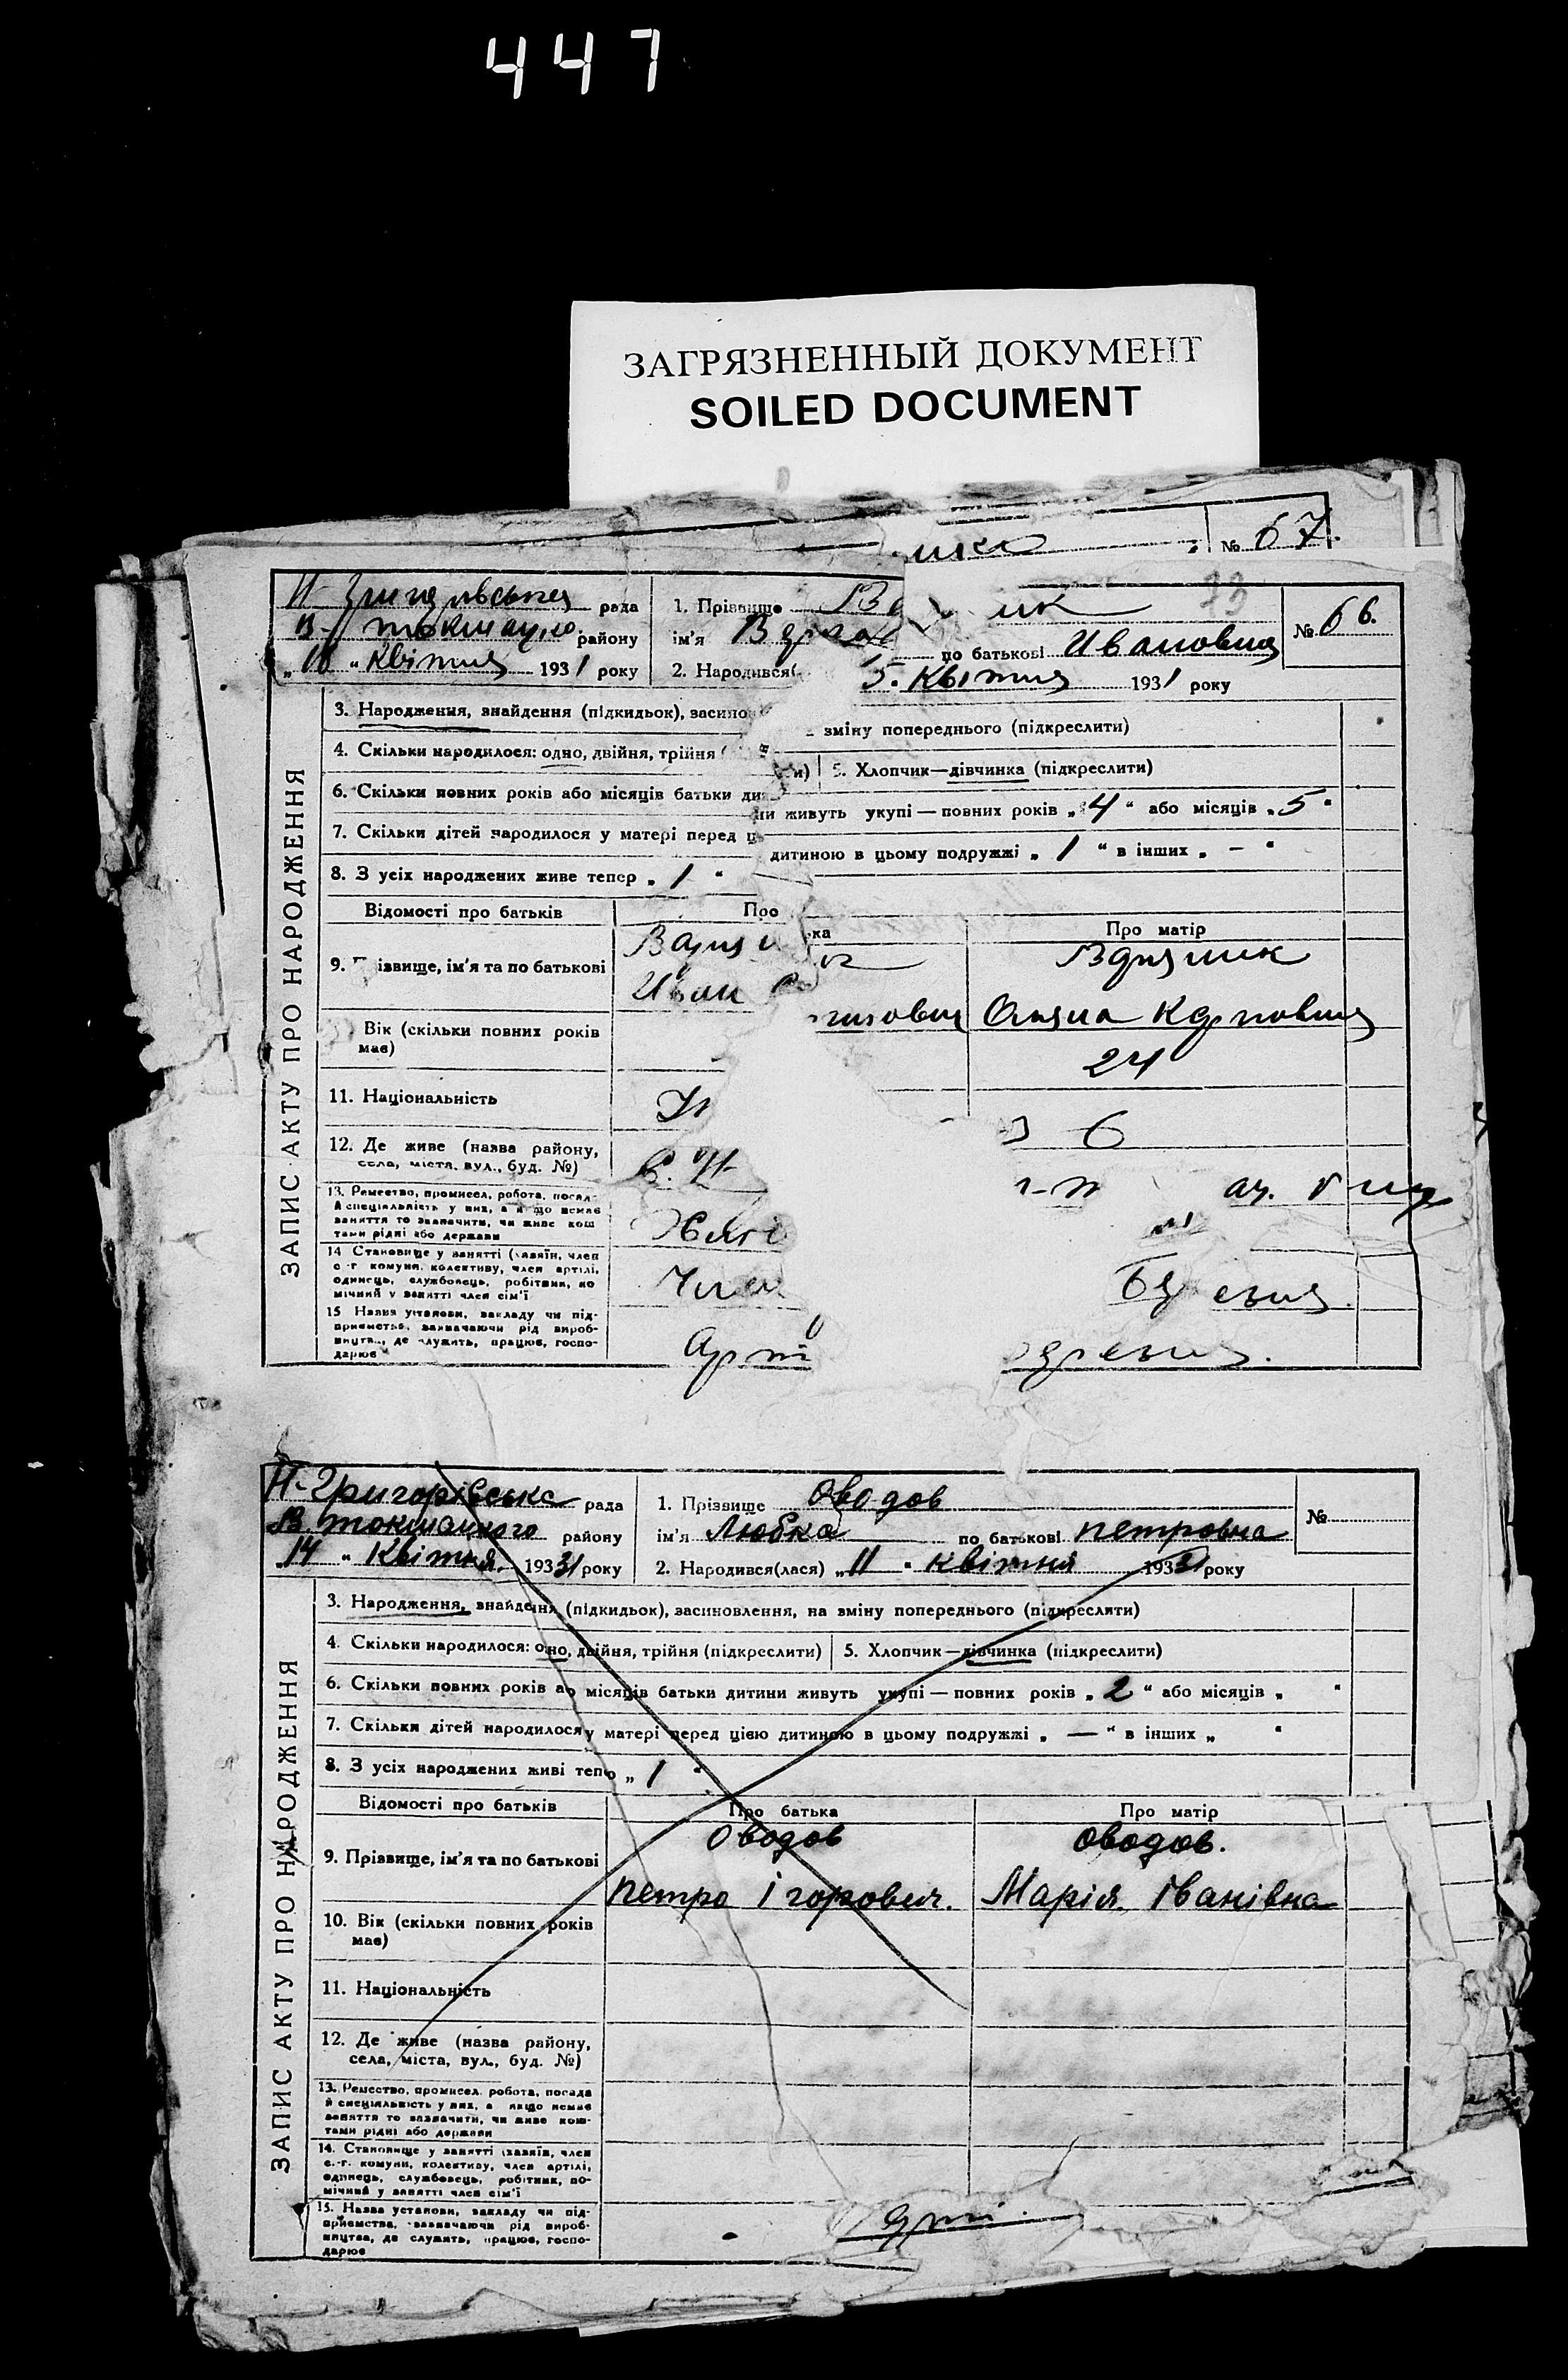 447
ЗАГРЯЗНЕННЫЙ ДОКУМЕНТ
SOILED DOCUMENT
№ 67.
рада
району
1931 року
1. Прізвище
ім'я
по батькові Ивановна
№ 66.
2. Народився( 5. Квітня 1931 року
ЗАПИС АКТУ ПРО НАРОДЖЕННЯ
3. Народження, знайдення (підкидьок), засино
зміну попереднього (підкреслити)
4. Скільки народилося: одно, двійня, трійня
и) 5. Хлопчик—дівчинка (підкреслити)
6. Скільки повних років або місяців батьки ди
ни живуть укупі — повних років „4“ або місяців „5“
7. Скільки дітей народилося у матері перед ц
дитиною в цьому подружжі „1“ в інших „-“
8. З усіх народжених живе тепер „1“
Відомості про батьків
Про
ка
Про матір
9. ізвище, ім'я та по батькові
Иван
Карповна
Вік (скільки повних років має)
24
11. Національність
12. Де живе (назва району, села, міста, вул., буд. №)
13. Ремество, промисел, робота, посад
й спеціяльність у них, а я що немає
заняття то зазначити, чи живе кош
тами рідні або держави
14 Становище у занятті (хазяїн, член
с -г комуни, колективу, член артілі,
одинець, службовець, робітник, по
мічний у занятті член сім'ї
15 Назва установи, закладу чи під-
приємства, зазначаючи рід вироб-
ництва, де служить, працює, госпо-
дарює
Н-Григорівська рада
В. Токмацького району
14 „ Квітня 19331 року
1. Прізвище Оводов
ім'я Любка по батькові Петровна
№
2. Народився(лася) „11“ квітня 19331 року
ЗАПИС АКТУ ПРО НАРОДЖЕННЯ
3. Народження, знайдення (підкидьок), засиновлення, на зміну попереднього (підкреслити)
4. Скільки народилося: оно, двійня, трійня (підкреслити) 5. Хлопчик—дівчинка (підкреслити)
6. Скільки повних років або місяців батьки дитини живуть укупі — повних років „2“ або місяців „ “
7. Скільки дітей народилося у матері перед цією дитиною в цьому подружжі „—“ в інших „ “
8. З усіх народжених живі тепр „1“
Відомості про батьків
Про батька
Про матір
9. Прізвище, ім'я та по батькові
Оводов
Оводов.
Петро Ігорович.
Марія Іванівна
10. Вік (скільки повних років має)
11. Національність
12. Де живе (назва району, села, міста, вул., буд. №)
13. Ремество, промисел, робота, посада
й спеціяльність у них, а якщо немає
заняття то зазначити, чи живе кош-
тами рідні або держави
14. Становище у занятті (хазяїн, член
с.-г. комуни, колективу, член артілі,
одинець, службовець, робітник, по-
мічний у занятті член сім'ї
15. Назва установи, закладу чи під-
приємства, зазначаючи рід вироб-
ництва, де служить, працює, госпо-
дарює